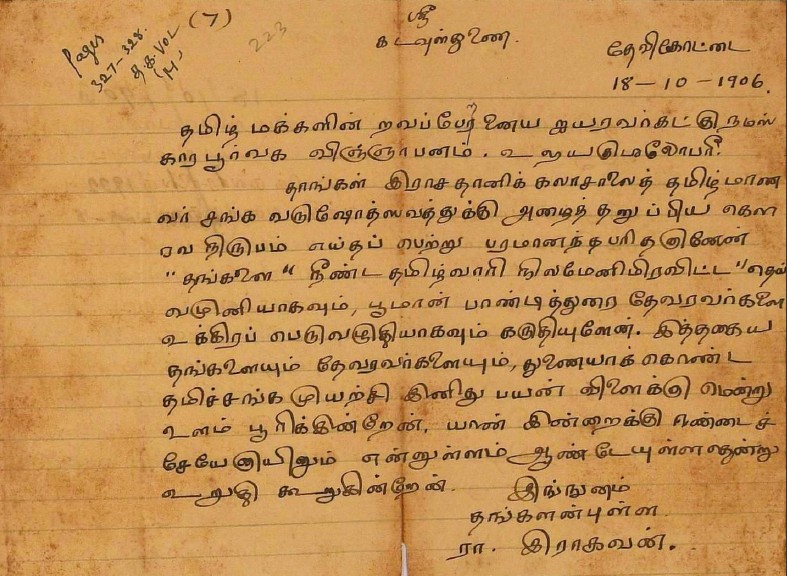 (7)
Pages
327-328.
த.க. VOL
223
ஸ்ரீ
கடவுள்துணை.
தேவிகோட்டை
18-10-1906.
தமிழ் மக்களின் றவப்பேறனைய ஐயரவர்கட்கு நமஸ்
காரபூர்வக விஞ்ஞாபனம்.
தாங்கள் இராசதானிக் கலாசாலைத் தமிழ்மாண
வர் சங்க வருஷோத்ஸவத்துக்கு அழைத்தனுப்பிய கௌ
ரவ நிருபம் எய்தப் பெற்று பரமானந்தபரிதனானேன்
"தங்களை" நீண்ட தமிழ்வாரி நிலமேனிமிரவிட்ட "தெய்
வமுனியாகவும், பூமான் பாண்டித்துரை தேவரவர்களை
உக்கிரப் பெருவழுதியாகவும் கருதியுளேன். இத்தகைய
தங்களையும் தேவரவர்களையும், துணையாக் கொண்ட
தமிச்சங்க முயற்சி இனிது பயன் விளைக்கு மென்று
உளம் பூரிக்கின்றேன், யான் இன்றைக்கு ஈண்டைச்
சேயேனாயினும் என்னுள்ளம் ஆண்டேயுள்ளதென்று
உறுதி கூறுகின்றேன். இங்ஙனம்
தங்களன்புள்ள
ரா. இராகவன்.